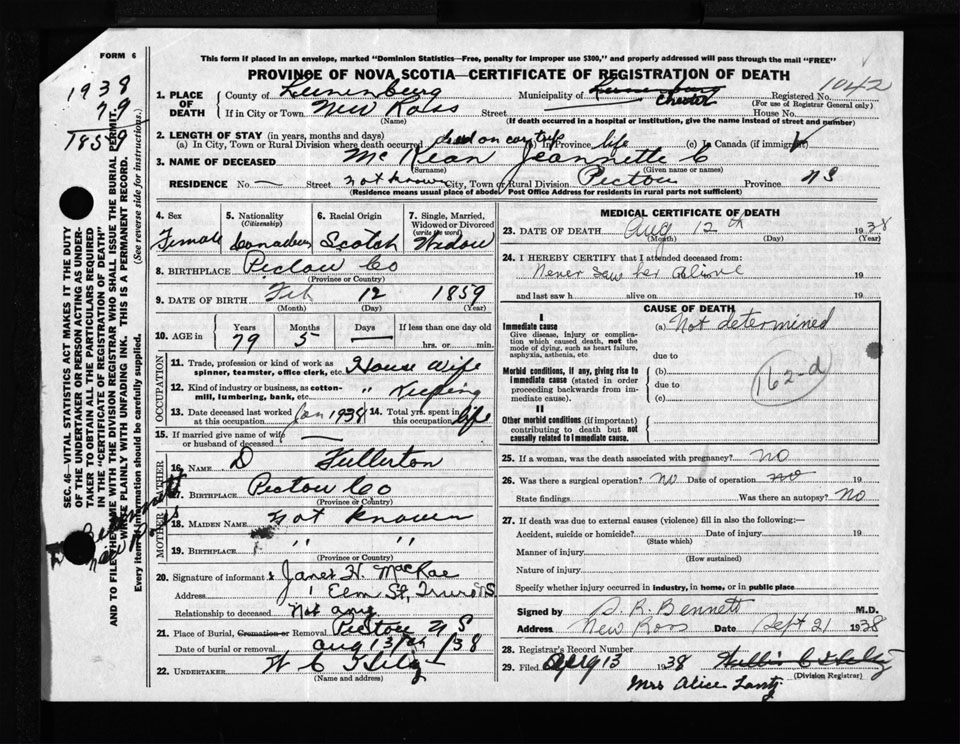 FORM 6
This form if placed in an envelope, marked "Dominion Statistics—Free, penalty for improper use $300," and properly addressed will pass through the mail "FREE"
PROVINCE OF NOVA SCOTIA—CERTIFICATE OF REGISTRATION OF DEATH
1938
79
1859
1042
1. PLACE OF DEATH
County of Lunenburg Municipality of Lunenburg Chester Registered No.
(For use of Registrar General only)
If in City or Town New Ross Street House No.
(Name) (If death occurred in a hospital or institution, give the name instead of street and number)
2. LENGTH OF STAY (in years, months and days)
(a) In City, Town or Rural Division where death occurred dead on car trip (b) In Province life (c) In Canada (if immigrant)
3. NAME OF DECEASED McKean Jeannette C
(Surname) (Given name or names)
RESIDENCE No. — Street not known City, Town or Rural Division Pictou Province NS
(Residence means usual place of abode. Post Office Address for residents in rural parts not sufficient)
4. Sex
Female
5. Nationality (Citizenship)
Canadian
6. Racial Origin
Scotch
7. Single, Married, Widowed or Divorced (write the word)
Widow
8. BIRTHPLACE Pictou Co
(Province or Country)
9. DATE OF BIRTH Feb 12 1859
(Month) (Day) (Year)
10. AGE in Years Months Days If less than one day old
79 5 — hrs. or min.
OCCUPATION
11. Trade, profession or kind of work as spinner, teamster, office clerk, etc. House wife
12. Kind of industry or business, as cotton-mill, lumbering, bank, etc. " Keeping
13. Date deceased last worked at this occupation Jan 1938
14. Total yrs. spent in this occupation life
15. If married give name of wife or husband of deceased —
FATHER
16. NAME D Fullerton
17. BIRTHPLACE Pictou Co
(Province or Country)
MOTHER
18. MAIDEN NAME not known
19. BIRTHPLACE " "
(Province or Country)
20. Signature of informant Janet H. MacRae
Address 1 Elm St, Truro N.S.
Relationship to deceased Not any
21. Place of Burial, Cremation or Removal Pictou N S
Date of burial or removal Aug 13/38
22. UNDERTAKER
(Name and address)
MEDICAL CERTIFICATE OF DEATH
23. DATE OF DEATH Aug 12th 1938
(Month) (Day) (Year)
24. I HEREBY CERTIFY that I attended deceased from:
Never saw her Alive 19
and last saw h alive on 19
CAUSE OF DEATH
I
Immediate cause (a) Not determined
Give disease, injury or complication which caused death, not the mode of dying, such as heart failure, asphyxia, asthenia, etc.
due to
Morbid conditions, if any, giving rise to immediate cause (stated in order proceeding backwards from immediate cause).
(b)
due to
(c)
162-d
II
Other morbid conditions (if important) contributing to death but not causally related to immediate cause.
25. If a woman, was the death associated with pregnancy? no
26. Was there a surgical operation? no Date of operation no 19
State findings Was there an autopsy? No
27. If death was due to external causes (violence) fill in also the following:—
Accident, suicide or homicide? Date of injury 19
(State which)
Manner of injury
(How sustained)
Nature of injury
Specify whether injury occurred in industry, in home, or in public place
Signed by D. R. Bennett M.D.
Address New Ross Date Sept 21 1938
28. Registrar's Record Number
29. Filed Aug 13 1938
(Division Registrar)
Mrs Alice Lantz
SEC. 46—VITAL STATISTICS ACT MAKES IT THE DUTY
OF THE UNDERTAKER OR PERSON ACTING AS UNDER-
TAKER TO OBTAIN ALL THE PARTICULARS REQUIRED
IN THE "CERTIFICATE OF REGISTRATION OF DEATH"
AND TO FILE THE SAME WITH THE DIVISION REGISTRAR WHO SHALL ISSUE THE BURIAL PERMIT.
WRITE PLAINLY WITH UNFADING INK. THIS IS A PERMANENT RECORD.
Every item of information should be carefully supplied. (See reverse side for instructions.)
Bennett
New Ross